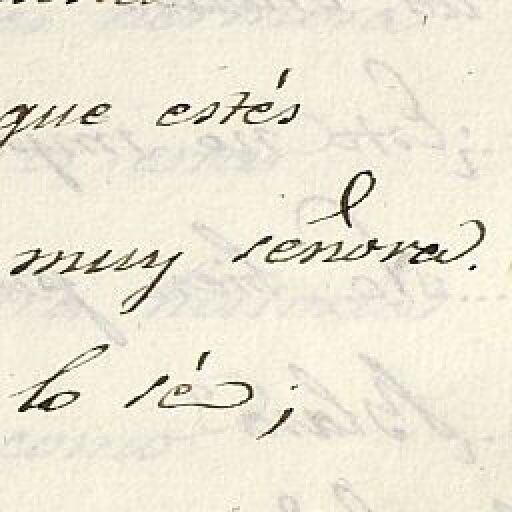 que estés
muy señora.
lo sé;